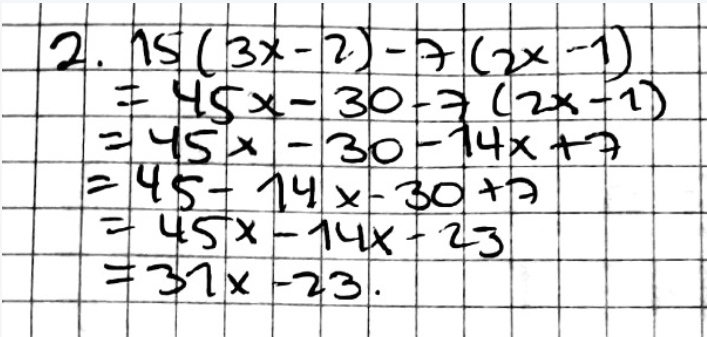 2. 15(3x-2)-7(2x-1)
= 45x-30-7(2x-1)
= 45x-30-14x+7
= 45-14x-30+7
= 45x-14x-23
= 31x-23.